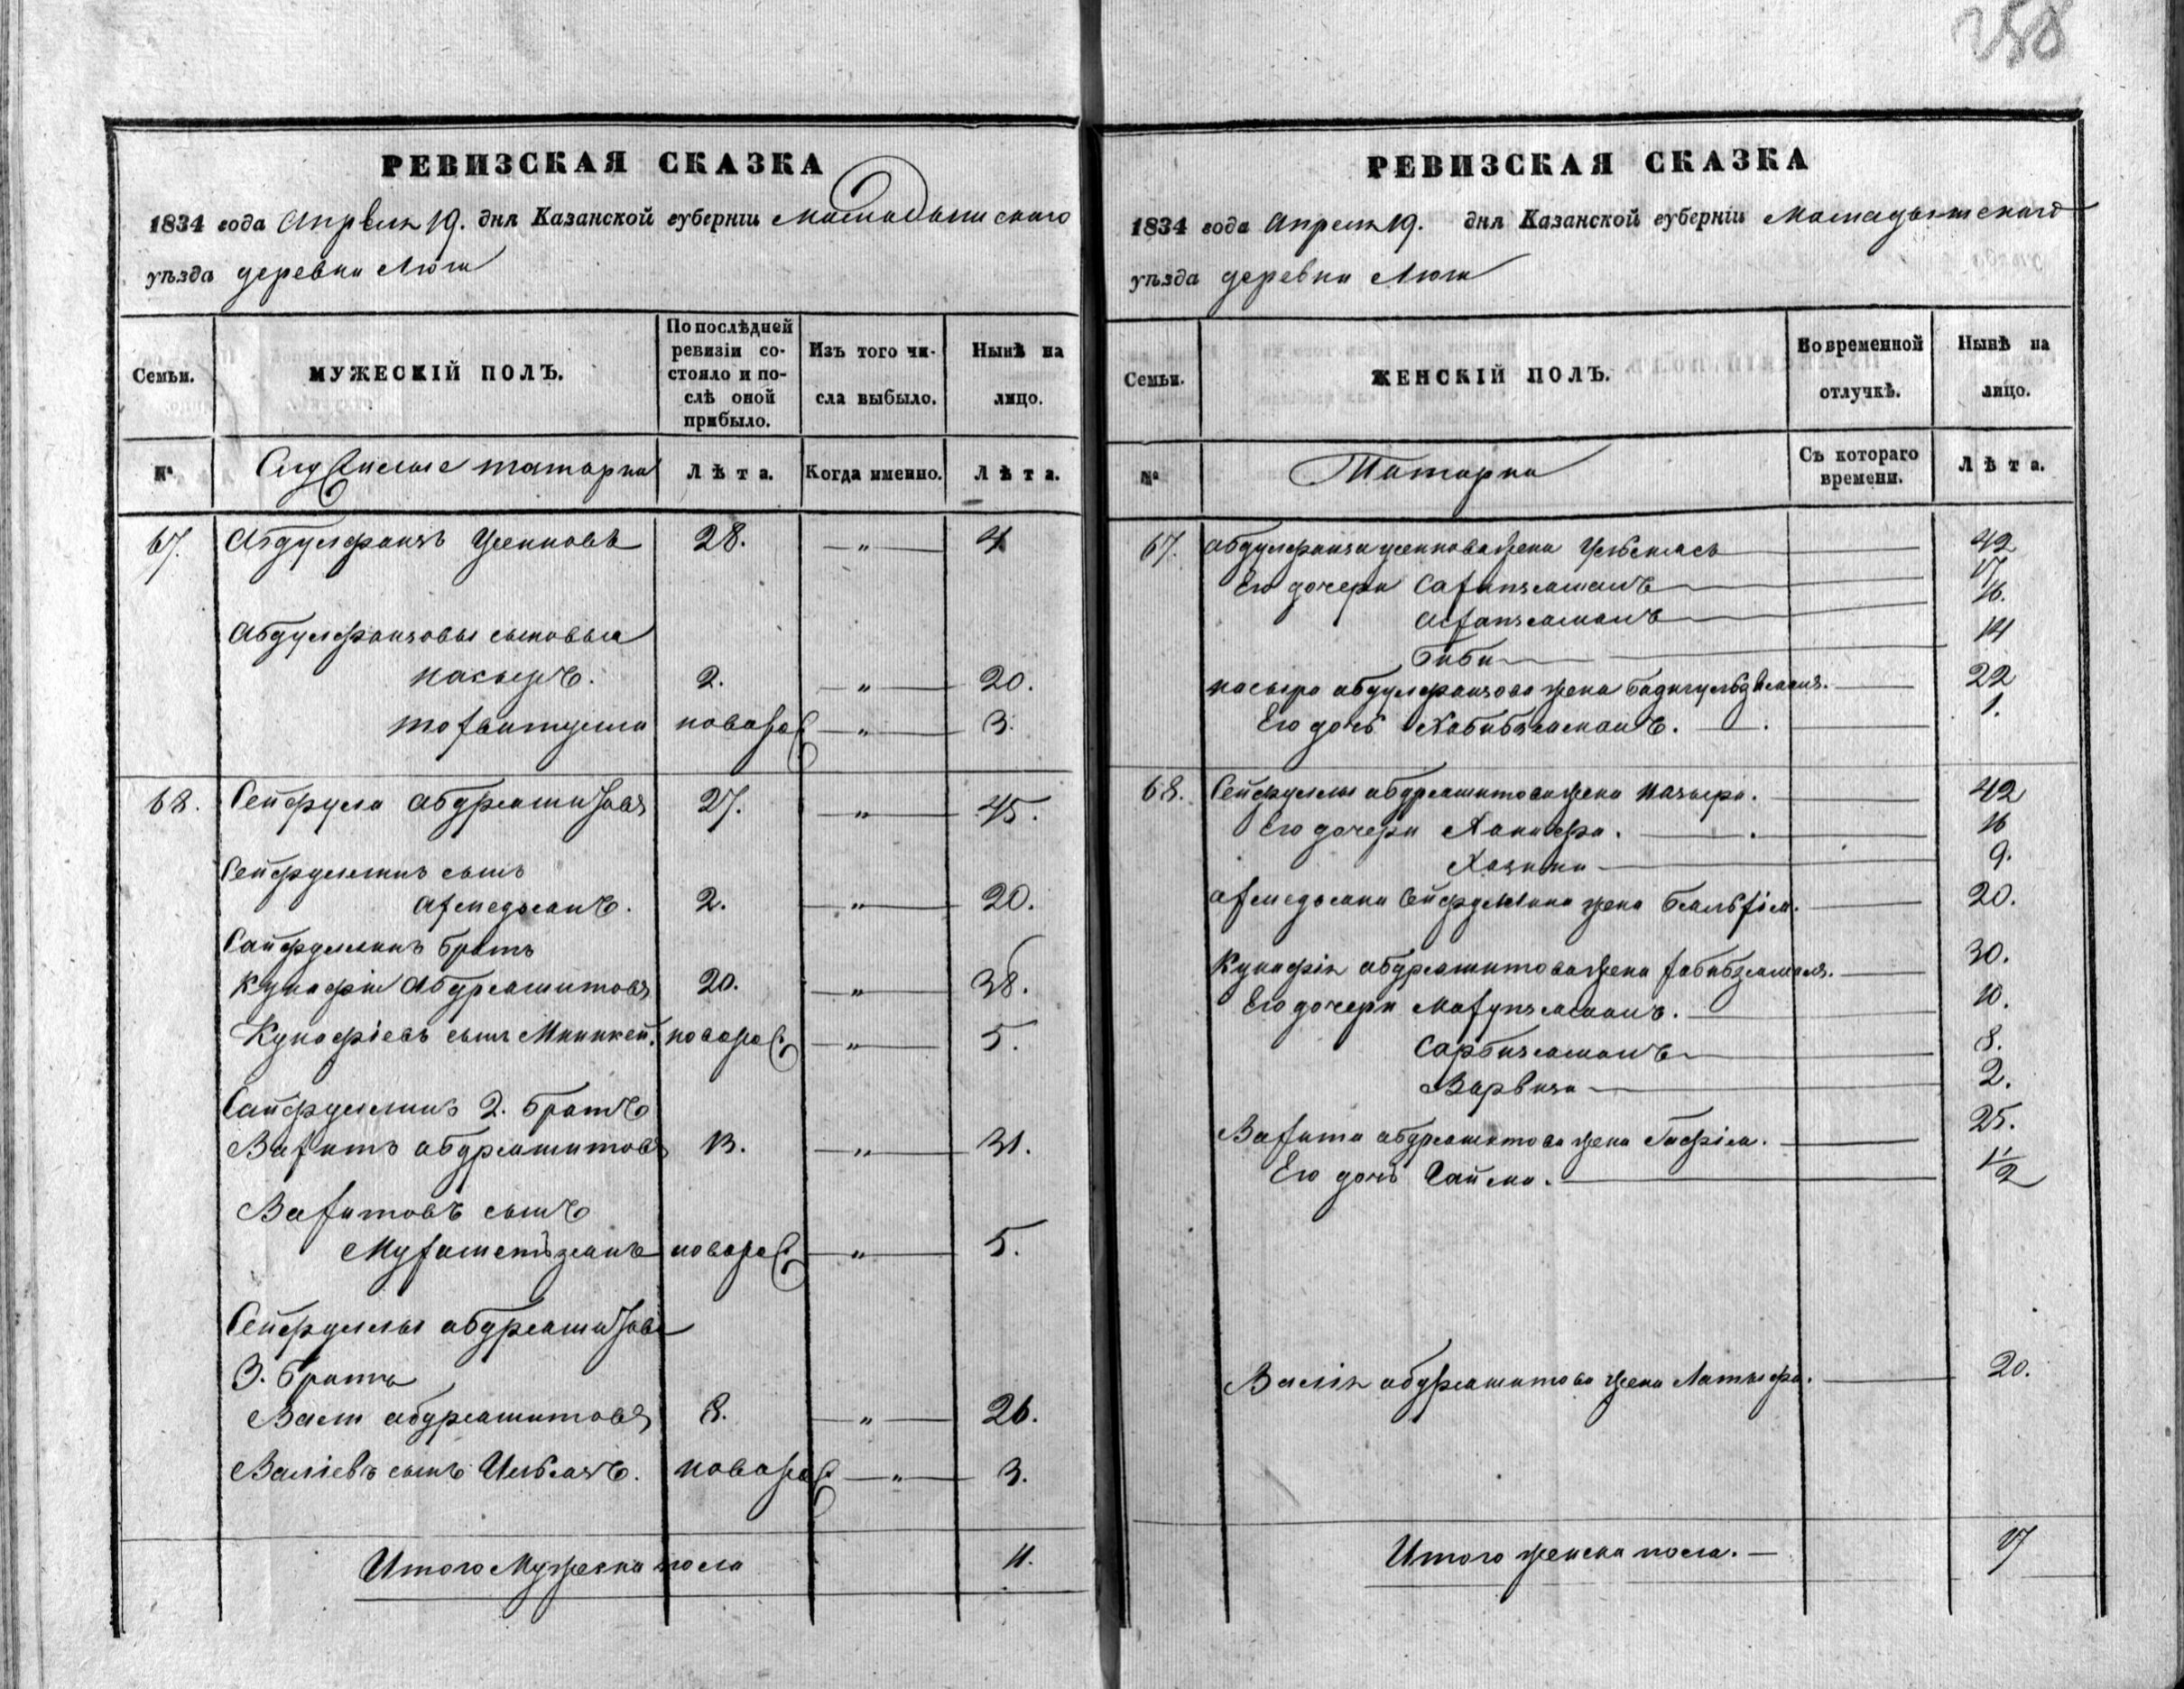 258
РЕВИЗСКАЯ СКАЗКА
1834 года Апреля 19. дня Казанской губерніи Мамадышскаго
уѣзда деревни Люги
Семьи.
МУЖЕСКІЙ ПОЛЪ.
По послѣдней ревизіи состояло и послѣ оной прибыло.
Изъ того числа выбыло.
Нынѣ на лицо.
№
татары
Лѣта.
Когда именно.
Лѣта.
67. 28. — „ — 4
Абдулфаизовы сыновья
Насыръ. 2. — „ — 20.
новорож — „ — 3.
68. Сейфулла Абдрашитовъ 27. — „ — 45.
Сейфуллинъ сынъ
Ахмедзянъ. 2. — „ — 20.
Сайфуллинъ братъ
Кунафiи Абдрашитовъ 20. — „ — 38.
Кунафіевъ сынъ Миникей. новорож — „ — 5.
Сайфуллинъ 2. братъ
Вахитъ абдрашитовъ 13. — „ — 31.
Вахитовъ сынъ
Мухаметзянъ новорож — „ — 5.
Сейфуллы абдрашитова
3. братъ
Вали абдрашитовъ 8. — „ — 26.
Валіевъ сынъ Ильязъ. новорож — „ — 3.
Итого Мужеска пола 11.
РЕВИЗСКАЯ СКАЗКА
1834 года Апреля 19. дня Казанской губерніи Мамадышскаго
уѣзда деревни Люги
Семьи.
ЖЕНСКІЙ ПОЛЪ.
Во временной отлучкѣ.
Нынѣ на лицо.
№
Татарки
Съ котораго времени.
Лѣта.
67. жена 42
Его дочери 17
16.
Биби 14
Насыра абдулфаизова жена 22
Его дочь Хабибзяманъ. 1.
68. Сейфуллы абдрашитова жена Назыра. 42
Его дочери Ханифа. 16
9.
Ахмедзяна Сейфуллина жена 20.
Кунафія абдрашитова жена хабибзямалъ. 30.
Его дочери 10.
Сарбизяманъ 8.
2.
Вахита абдрашитова жена Гафія. 25.
Его дочь 1/2
Валія абдрашитова жена Латыфа. 20.
Итого женска пола. — 17